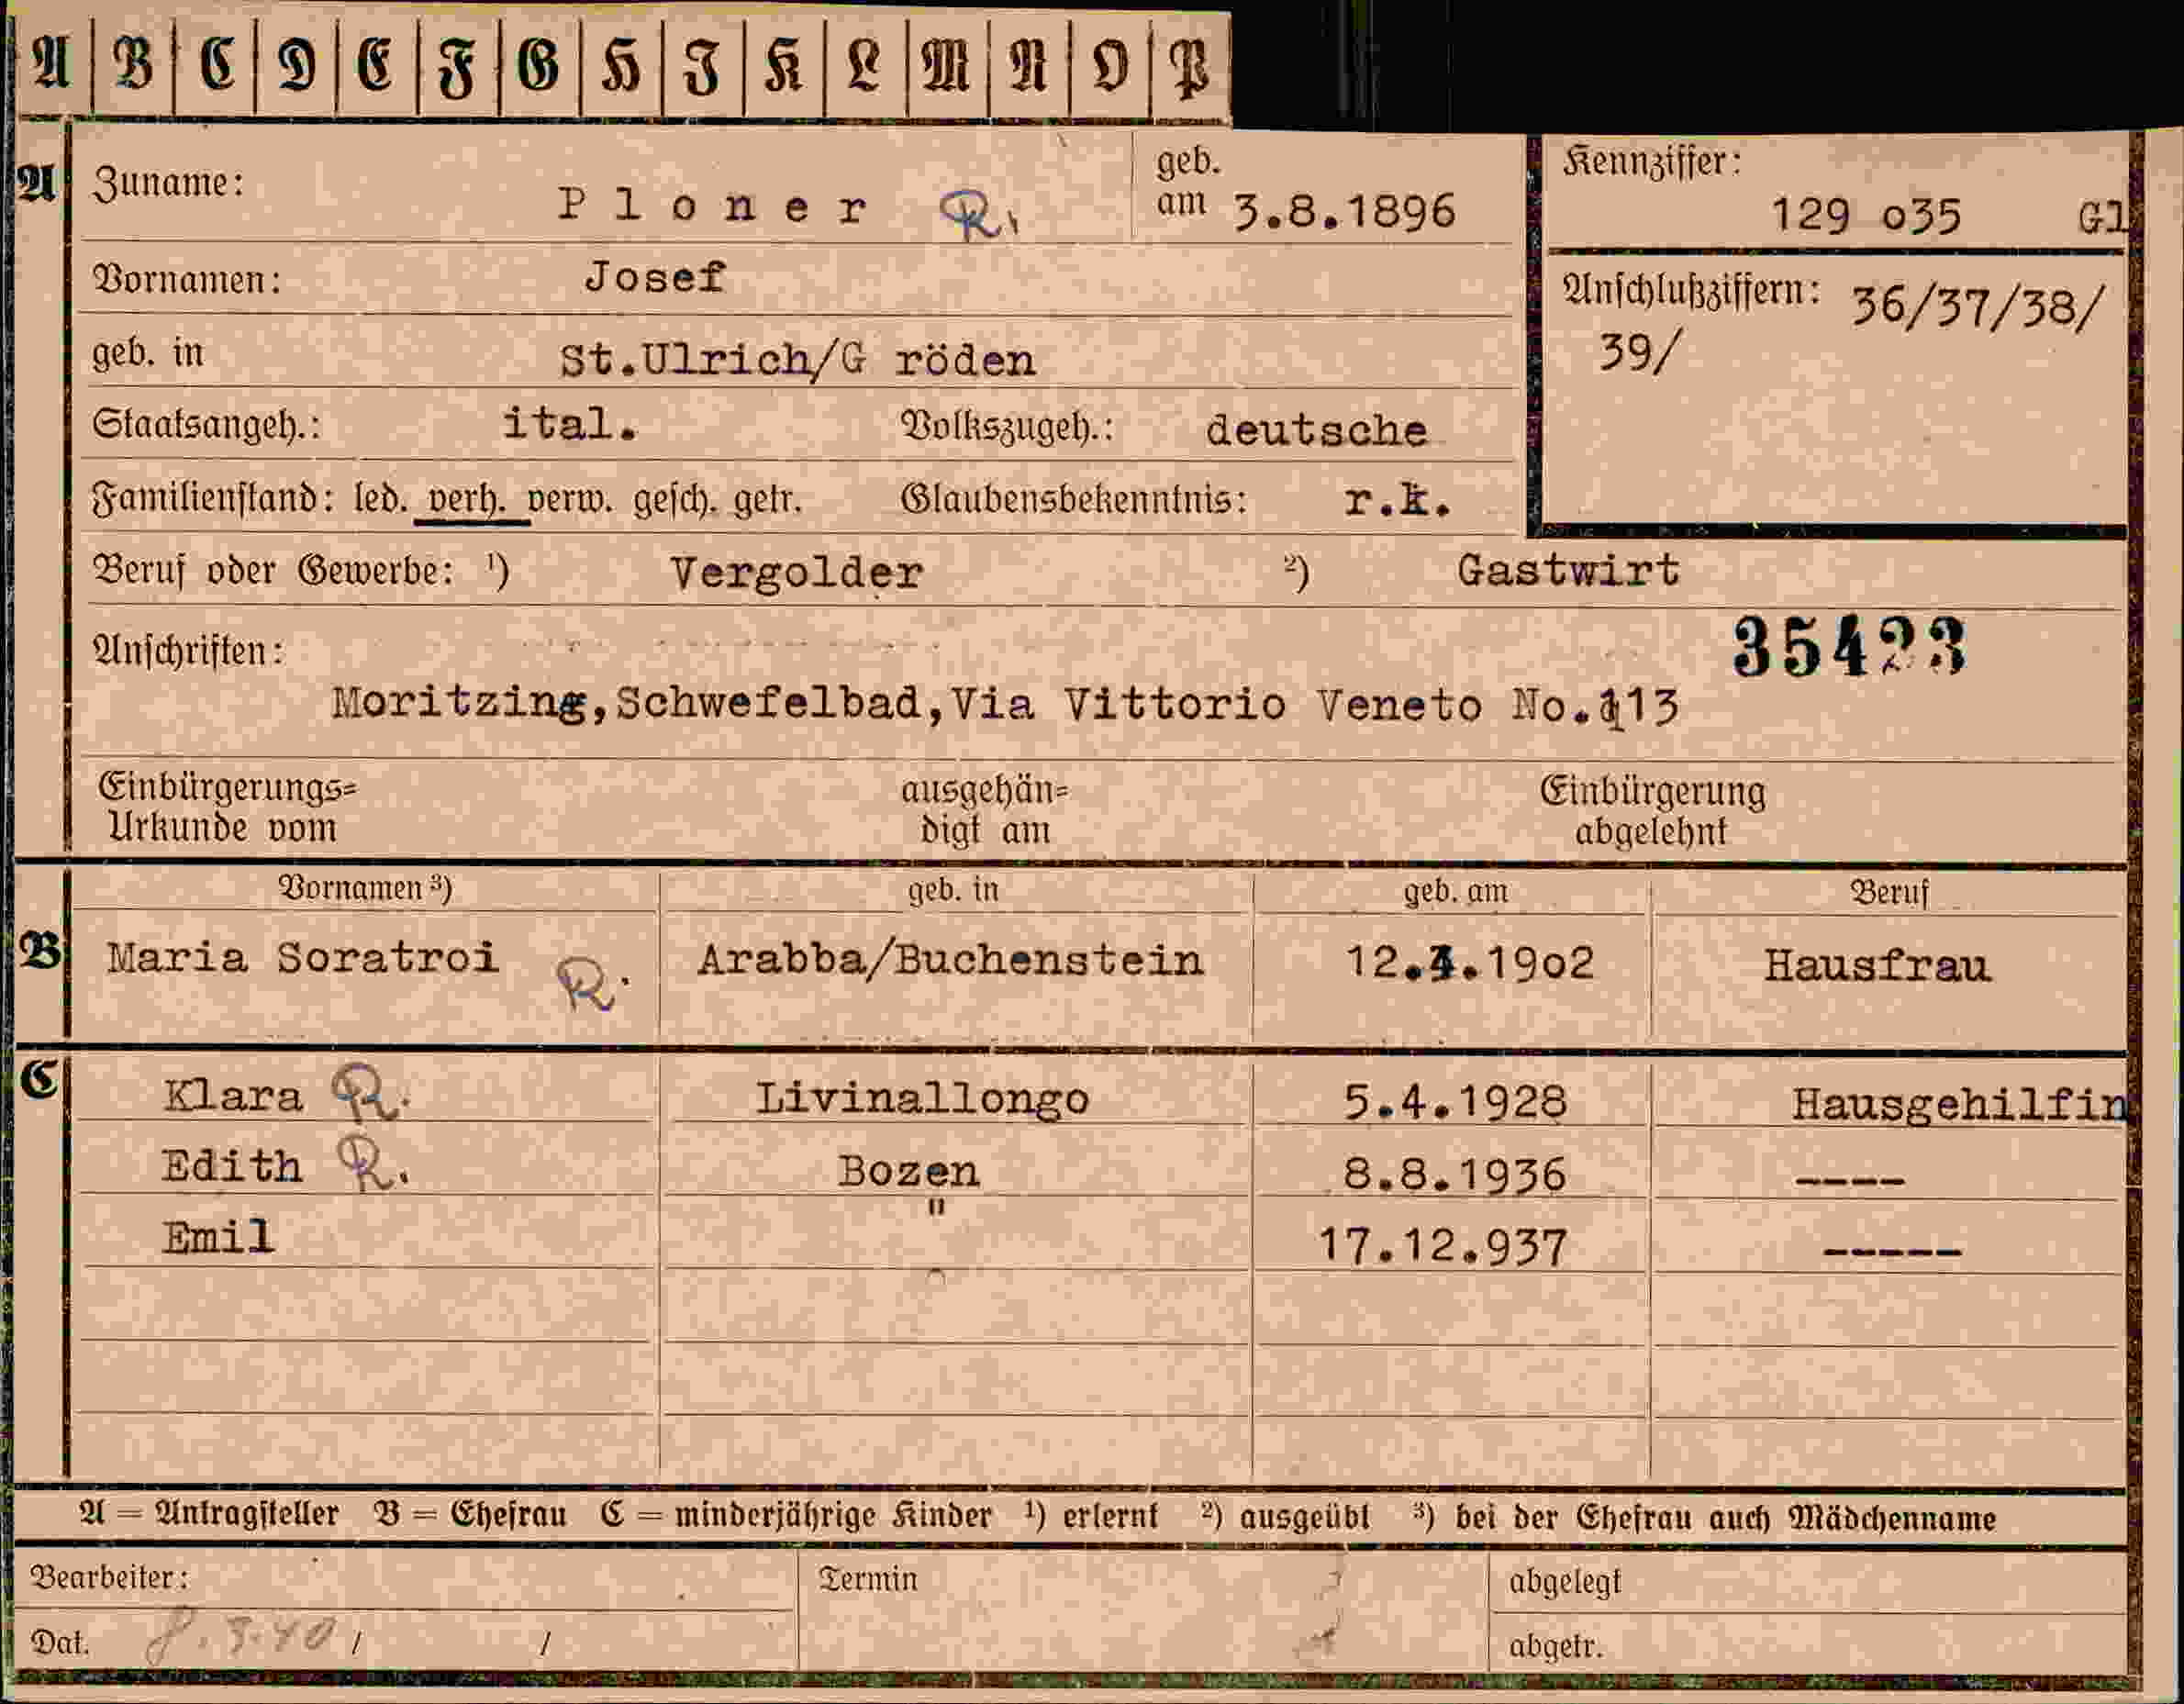 A B C D E F G H I K L M N O P
A Zuname: Ploner R. geb. am 3.8.1896 Kennziffer: 129 o35 Gl
Vornamen: Josef Anschlußziffern: 36/37/38/
39/
geb. in St.Ulrich/G röden
Staatsangeh.: ital. Volkszugeh.: deutsche
Familienstand: led. verh. verw. gesch. getr. Glaubensbekenntnis: r.k.
Beruf oder Gewerbe: ¹) Vergolder ²) Gastwirt
Anschriften: 35423
Moritzing,Schwefelbad,Via Vittorio Veneto No.113
Einbürgerungs= ausgehän= Einbürgerung
Urkunde vom digt am abgelehnt
Vornamen ³) geb. in geb. am Beruf
B Maria Soratroi R. Arabba/Buchenstein 12. .19o2 Hausfrau
C Klara R. Livinallongo 5.4.1928 Hausgehilfin
Edith R. Bozen 8.8.1936 ----
Emil " 17.12.937 -----
A = Antragsteller B = Ehefrau C = minderjährige Kinder ¹) erlernt ²) ausgeübt ³) bei der Ehefrau auch Mädchenname
Bearbeiter: Termin abgelegt
Dat. / / abgetr.